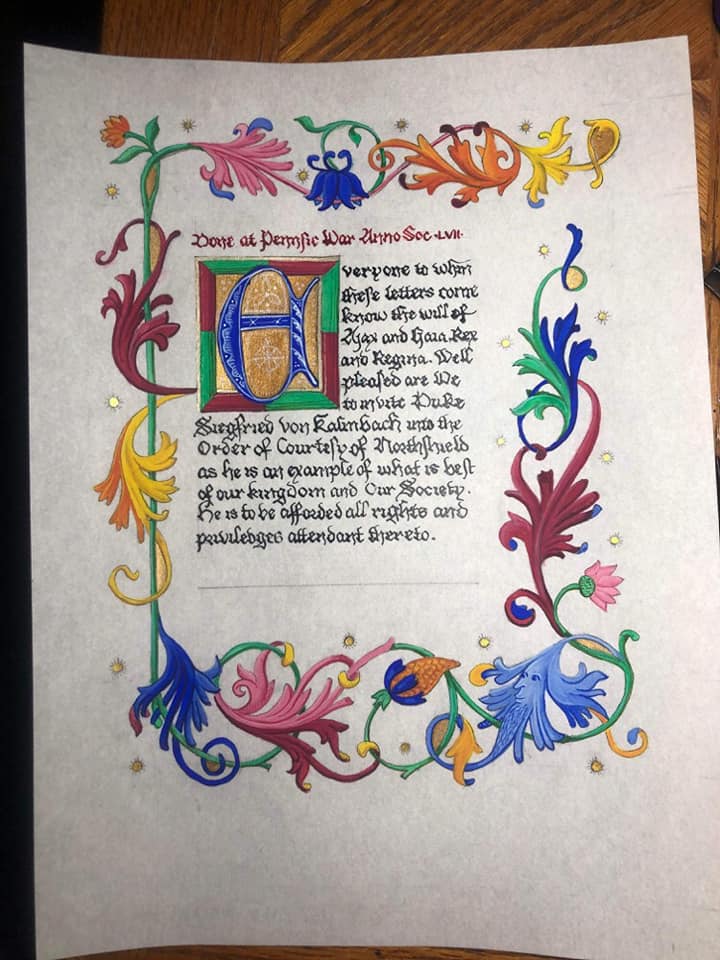 Done at Pennsic War Anno Soc · LVII ·
Everyone to whom
these letters come
know the will of
Ajax and Haia Rex
and Regina. Well
pleased are We
to invite Duke
Siegfried von Kalmbach into the
Order of Courtesy of Northshield
as he is an example of what is best
of our kingdom and Our Society.
He is to be afforded all rights and
privileges attendant thereto.